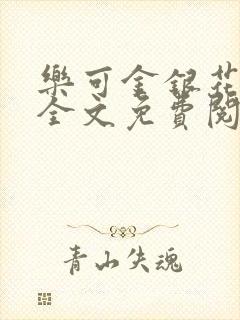 樂可金銀花
全文免費閱
青山失魂